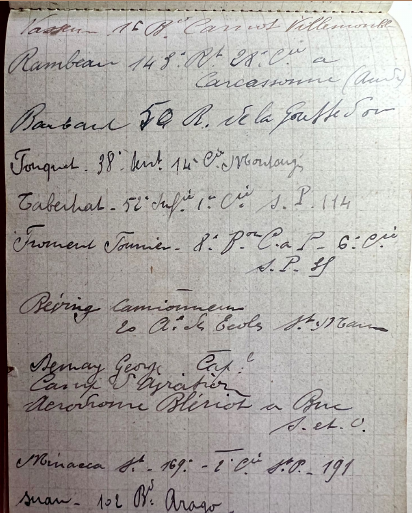 16 Bd Carnot Villemomble
Rambeau 143e Rt 28e Cie a
Carcassonne (Aude)
Barbaud 50 R. de la Goutte d'or
Fouquet. 38e 14e Cie
Taberlat. 52e Infrie 1e Cie S. P. 114
Froment Fournier. 8e Bon C. a P. 6e Cie
S. P. 35
Béving camionneur
20 Ae des Ecoles St Maur
George Cap.l
Camp d'Aviation
Aérodrome Blériot a Buc
S. et O.
Minacca St. 169e. 2e Cie S.P. 191
102 Bd Arago